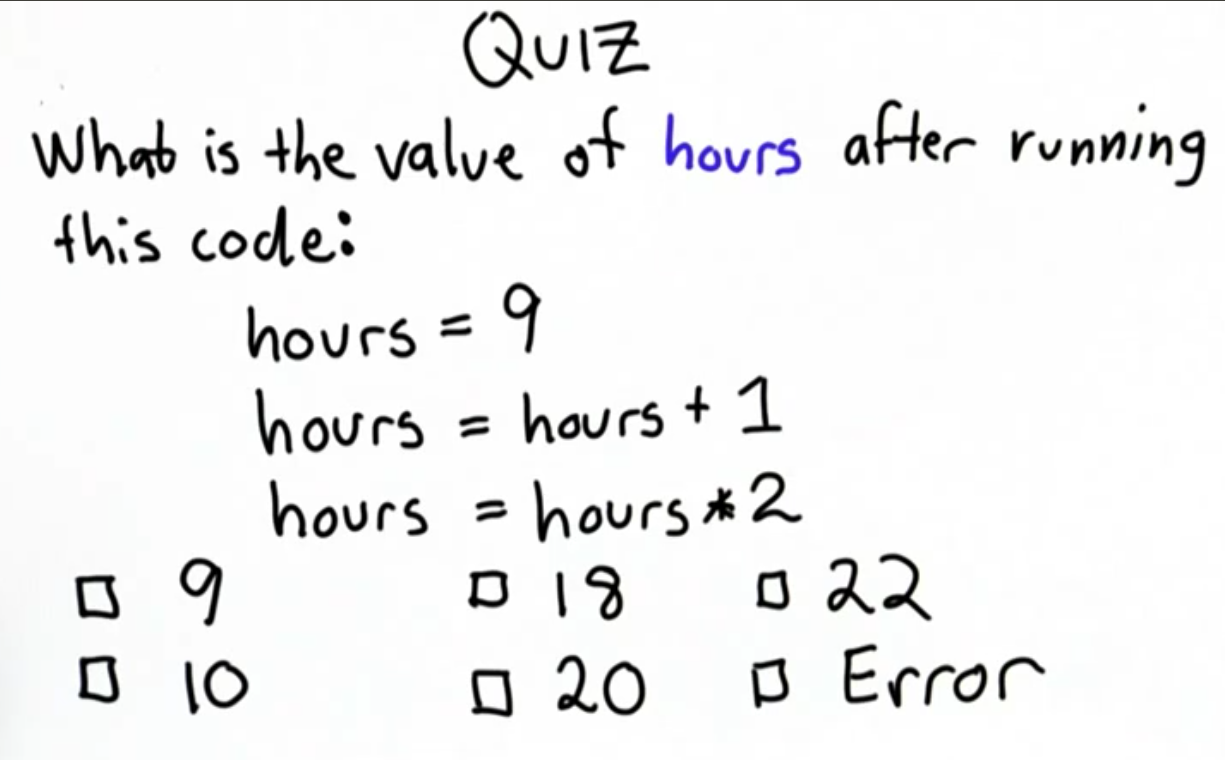 QUIZ
What is the value of hours after running
this code:
hours = 9
hours = hours + 1
hours = hours * 2
□ 9 □ 18 □ 22
□ 10 □ 20 □ Error